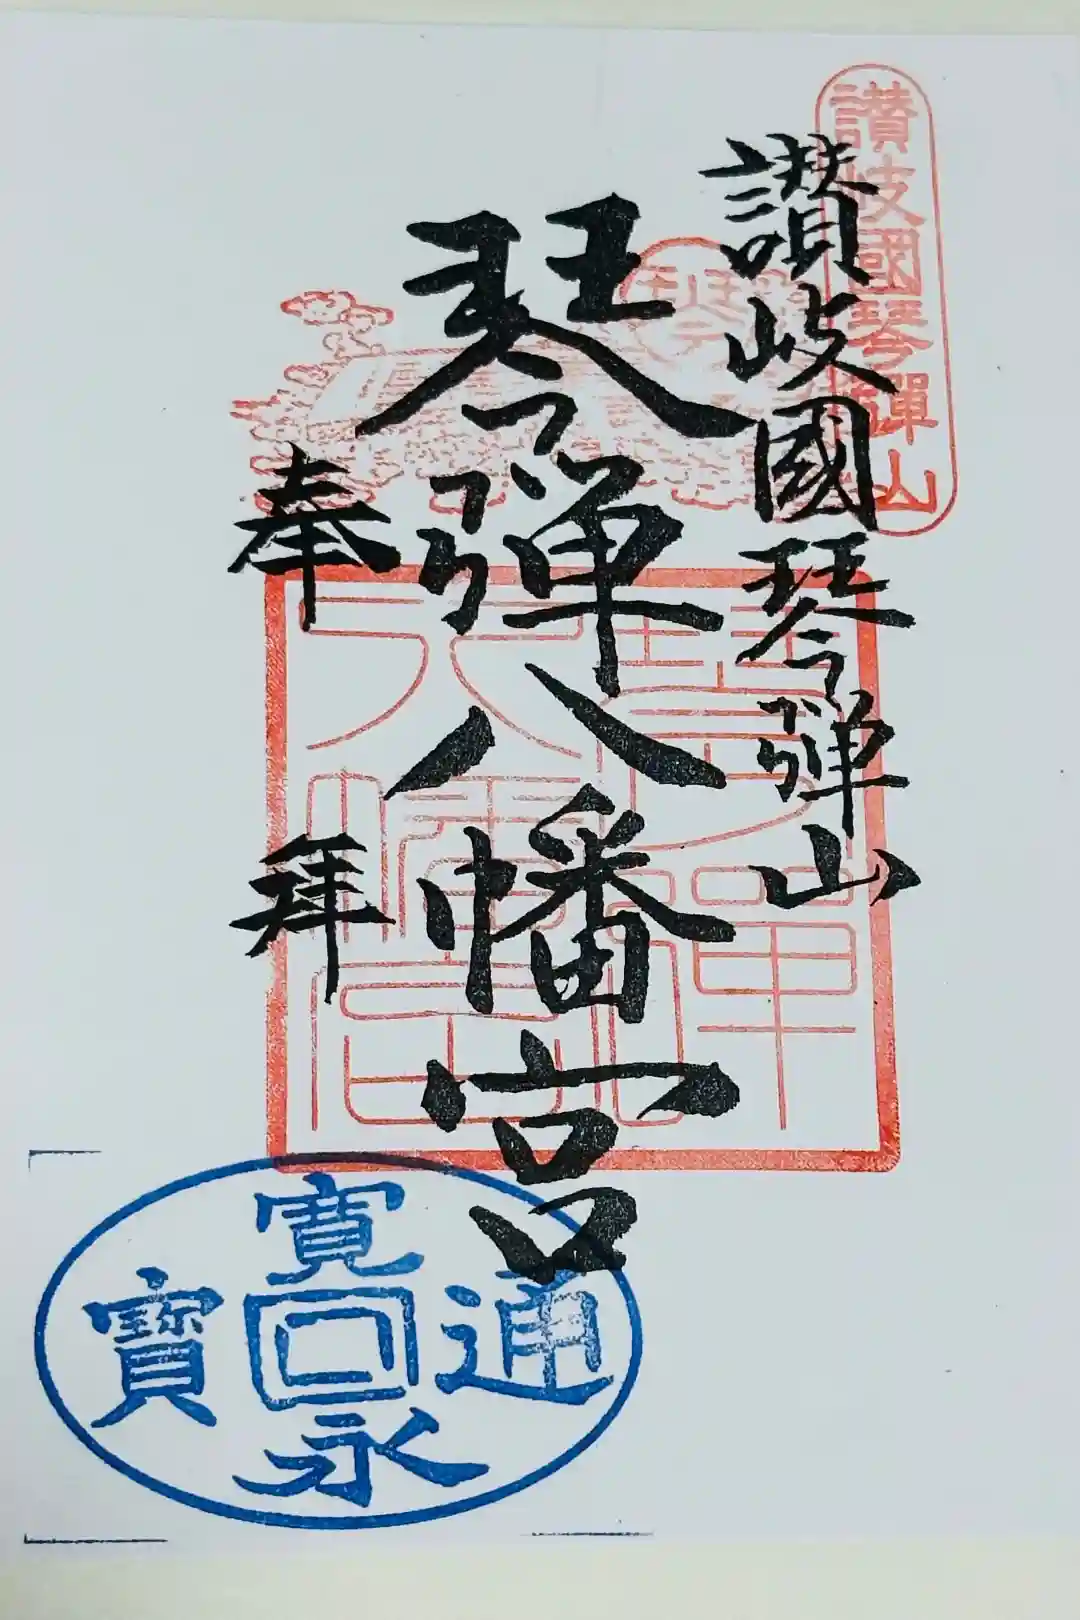 讃岐國琴弾山
讃岐國琴弾山
琴弾八幡宮
奉拝
琴弾八幡宮
寛永通寳